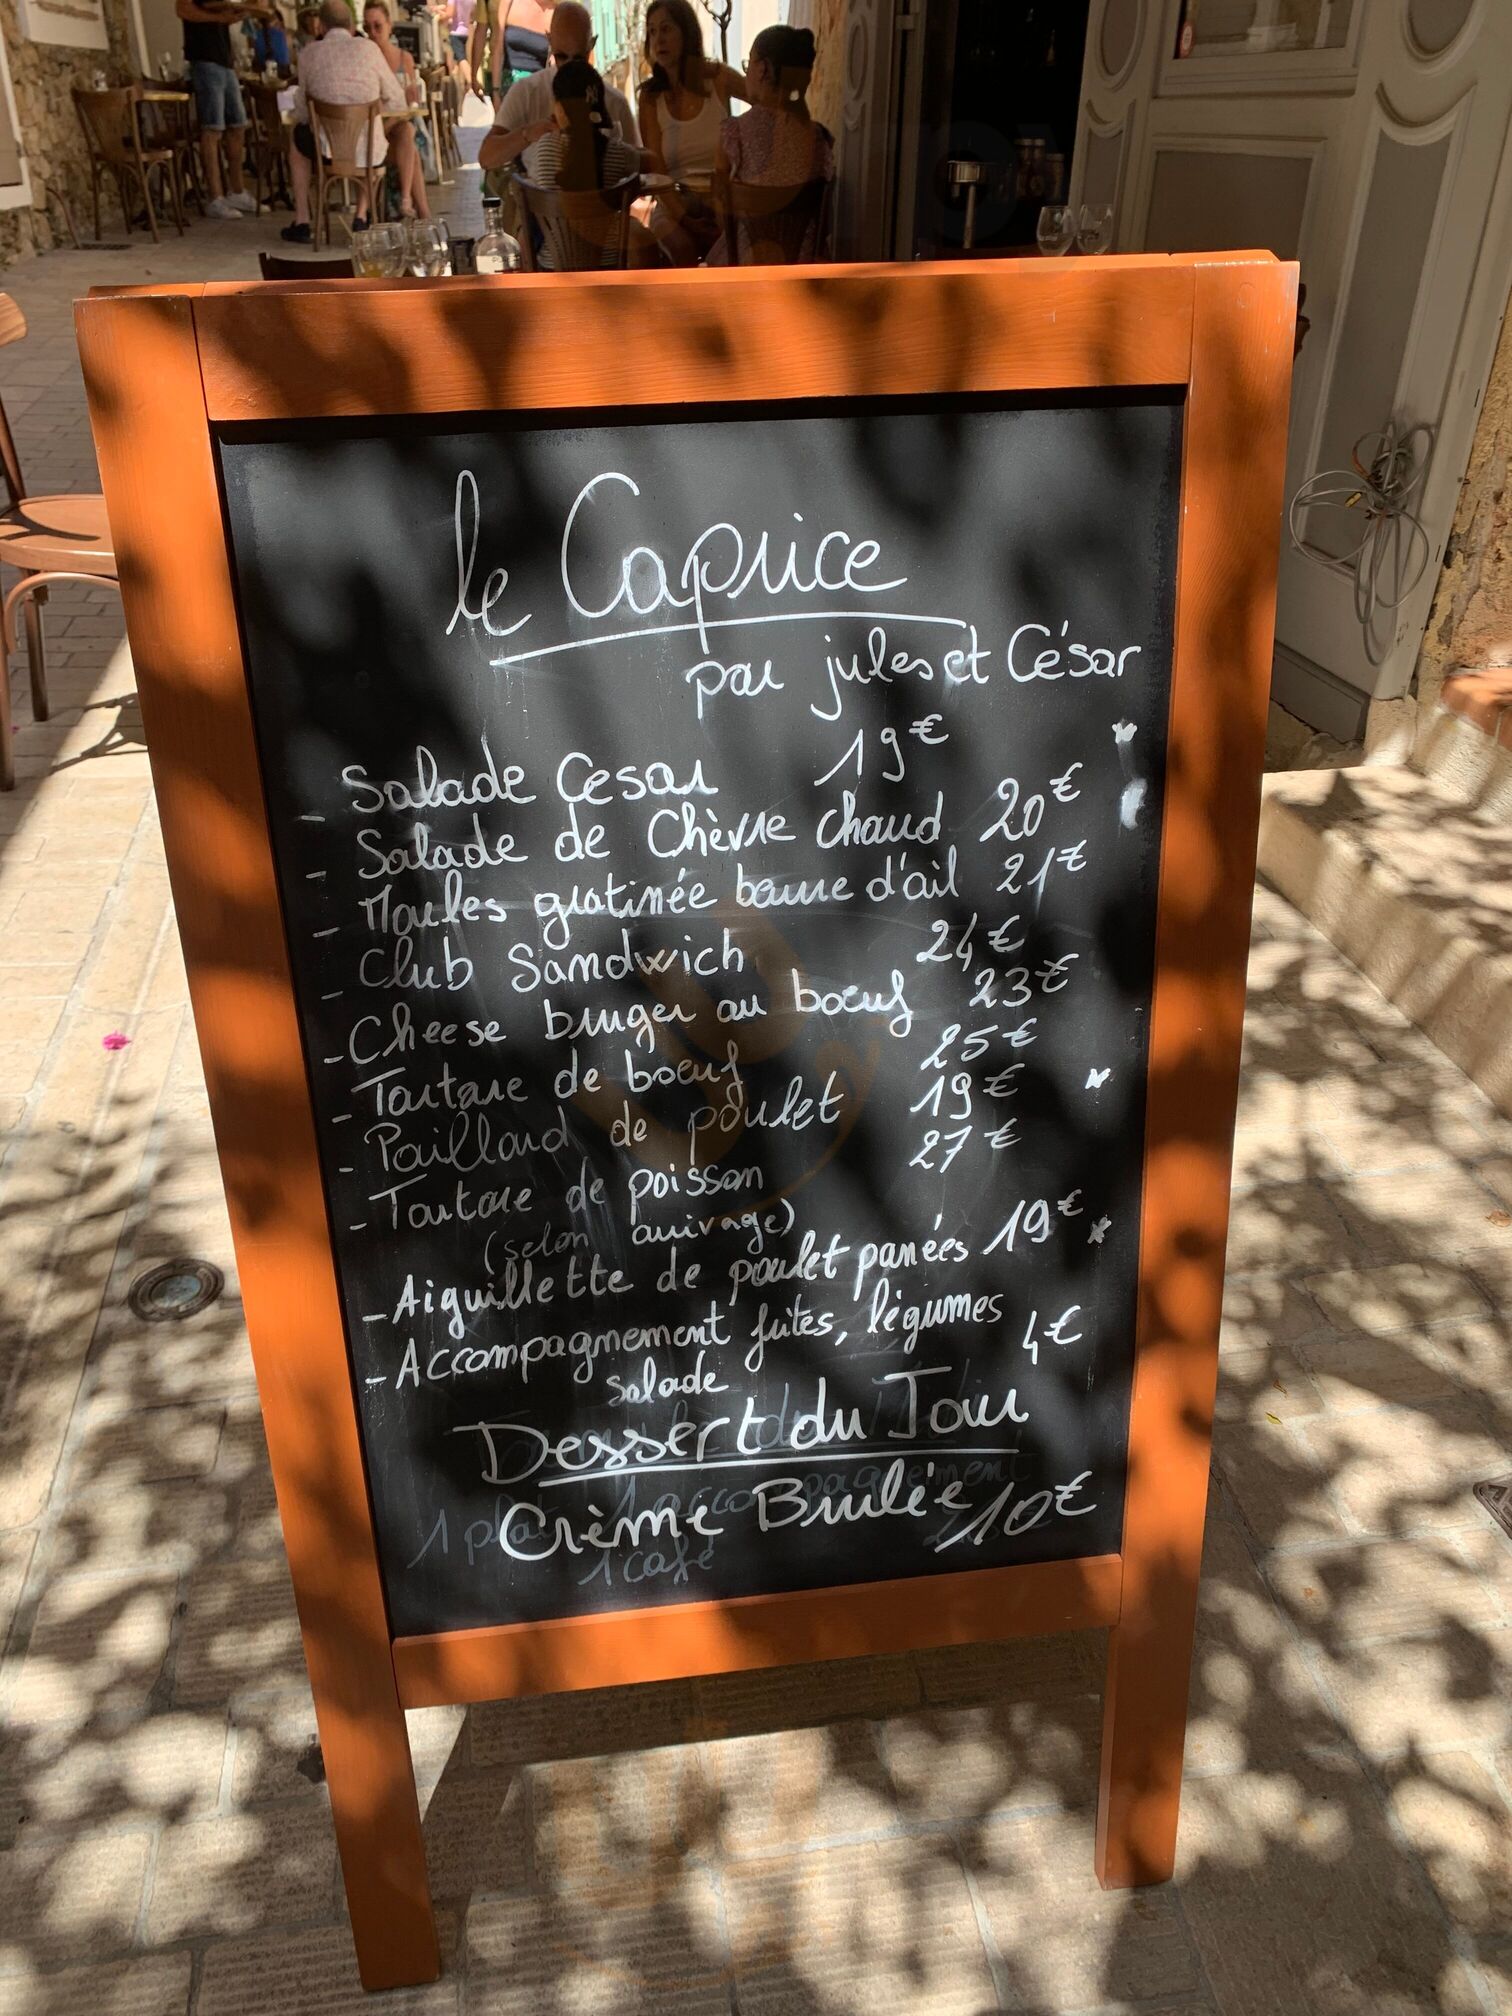 le Caprice
par jules et César
- Salade Cesar 19€ *
- Salade de Chèvre chaud 20€
- Moules gratinée beurre d'ail 21€
- Club Sandwich 24€
- Cheese bruger au boeuf 23€
- Tartare de boeuf 25€
- Paillard de poulet 19€ *
- Tartare de poisson 27€
(selon arrivage)
- Aiguillette de poulet panées 19€ *
- Accompagnement frites, légumes
salade 4€
Dessert du Jour
Crème Brulée 10€
1 plat 1 accompagnement
1 café